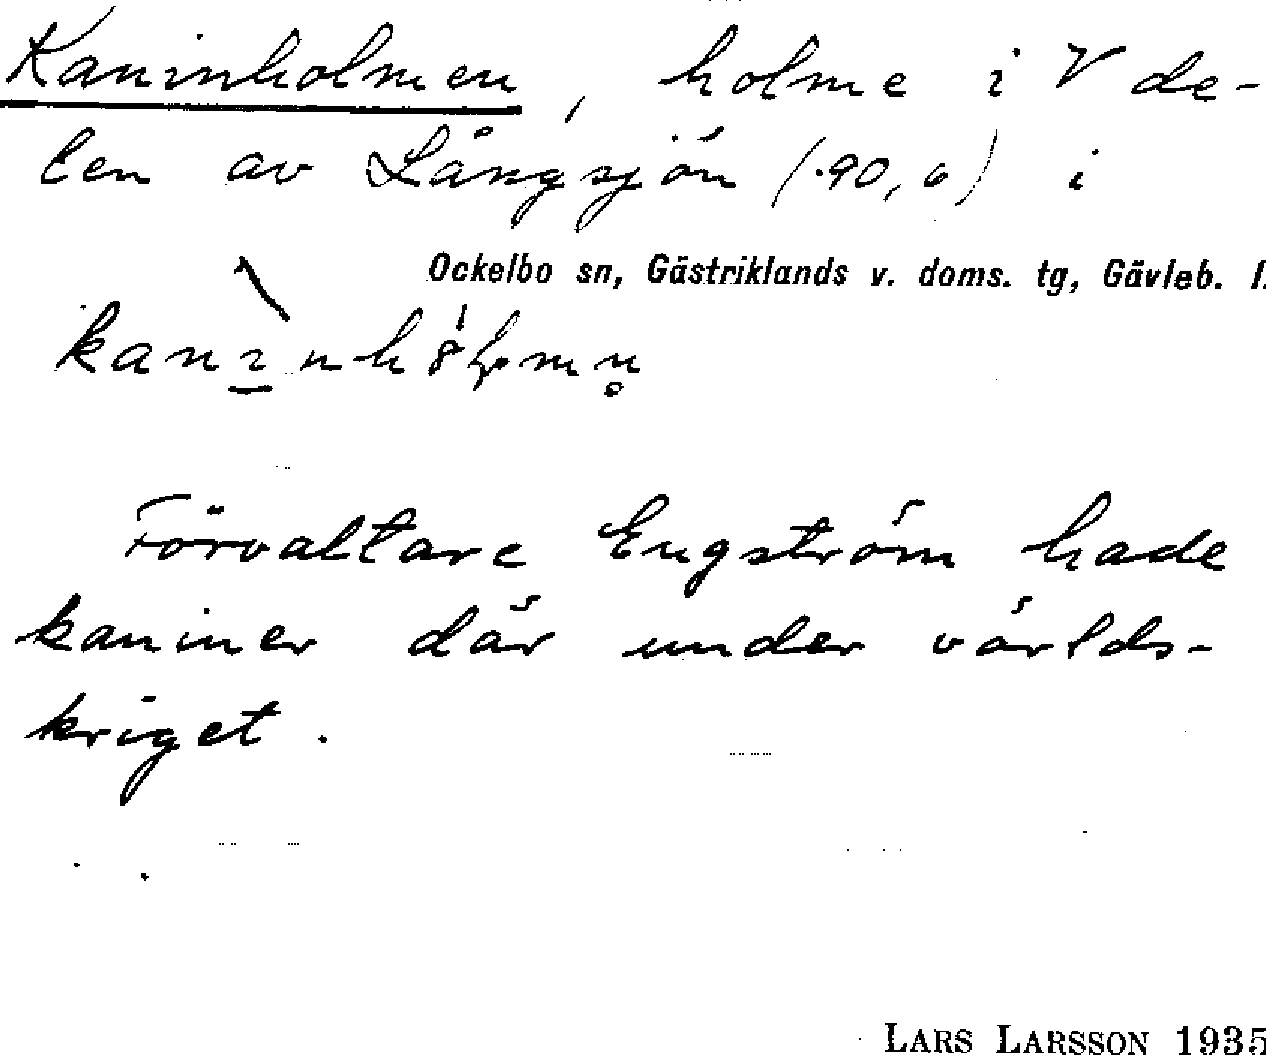 Kaninholmen, holme i V de-
len av Långsjön (.90,6) i
Ockelbo sn, Gästriklands v. doms. tg, Gävleb. l.
Förvaltare Engström hade
kaniner där under världs-
kriget.
LARS LARSSON 1935